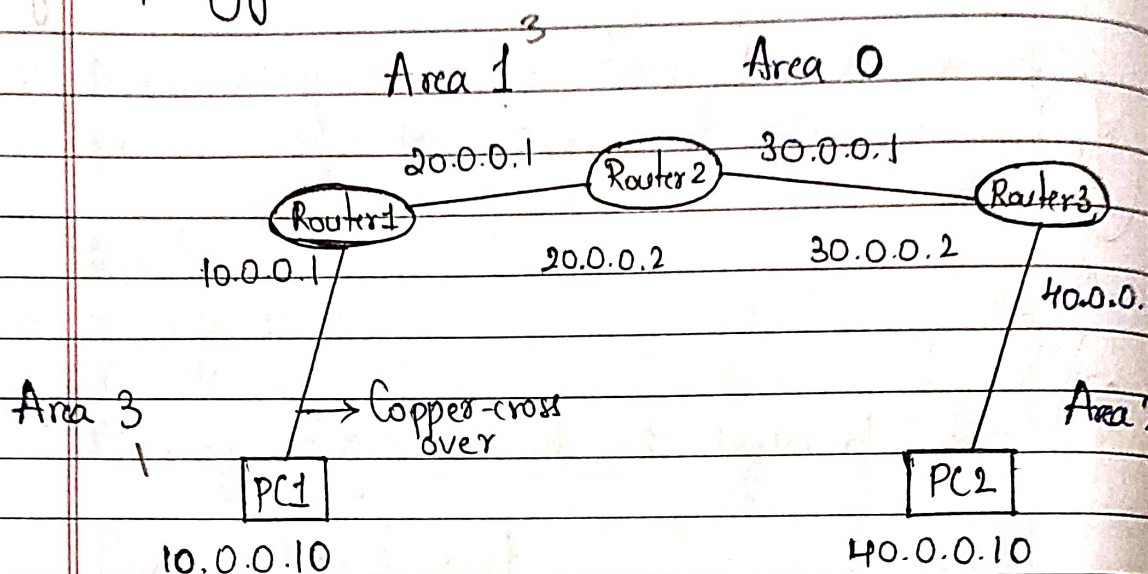 3
Area 1
Area 0
20.0.0.1
30.0.0.1
Router1
Router2
Router3
10.0.0.1
20.0.0.2
30.0.0.2
40.0.0.
Area 3
1
Copper-cross
over
Area
PC1
PC2
10.0.0.10
40.0.0.10